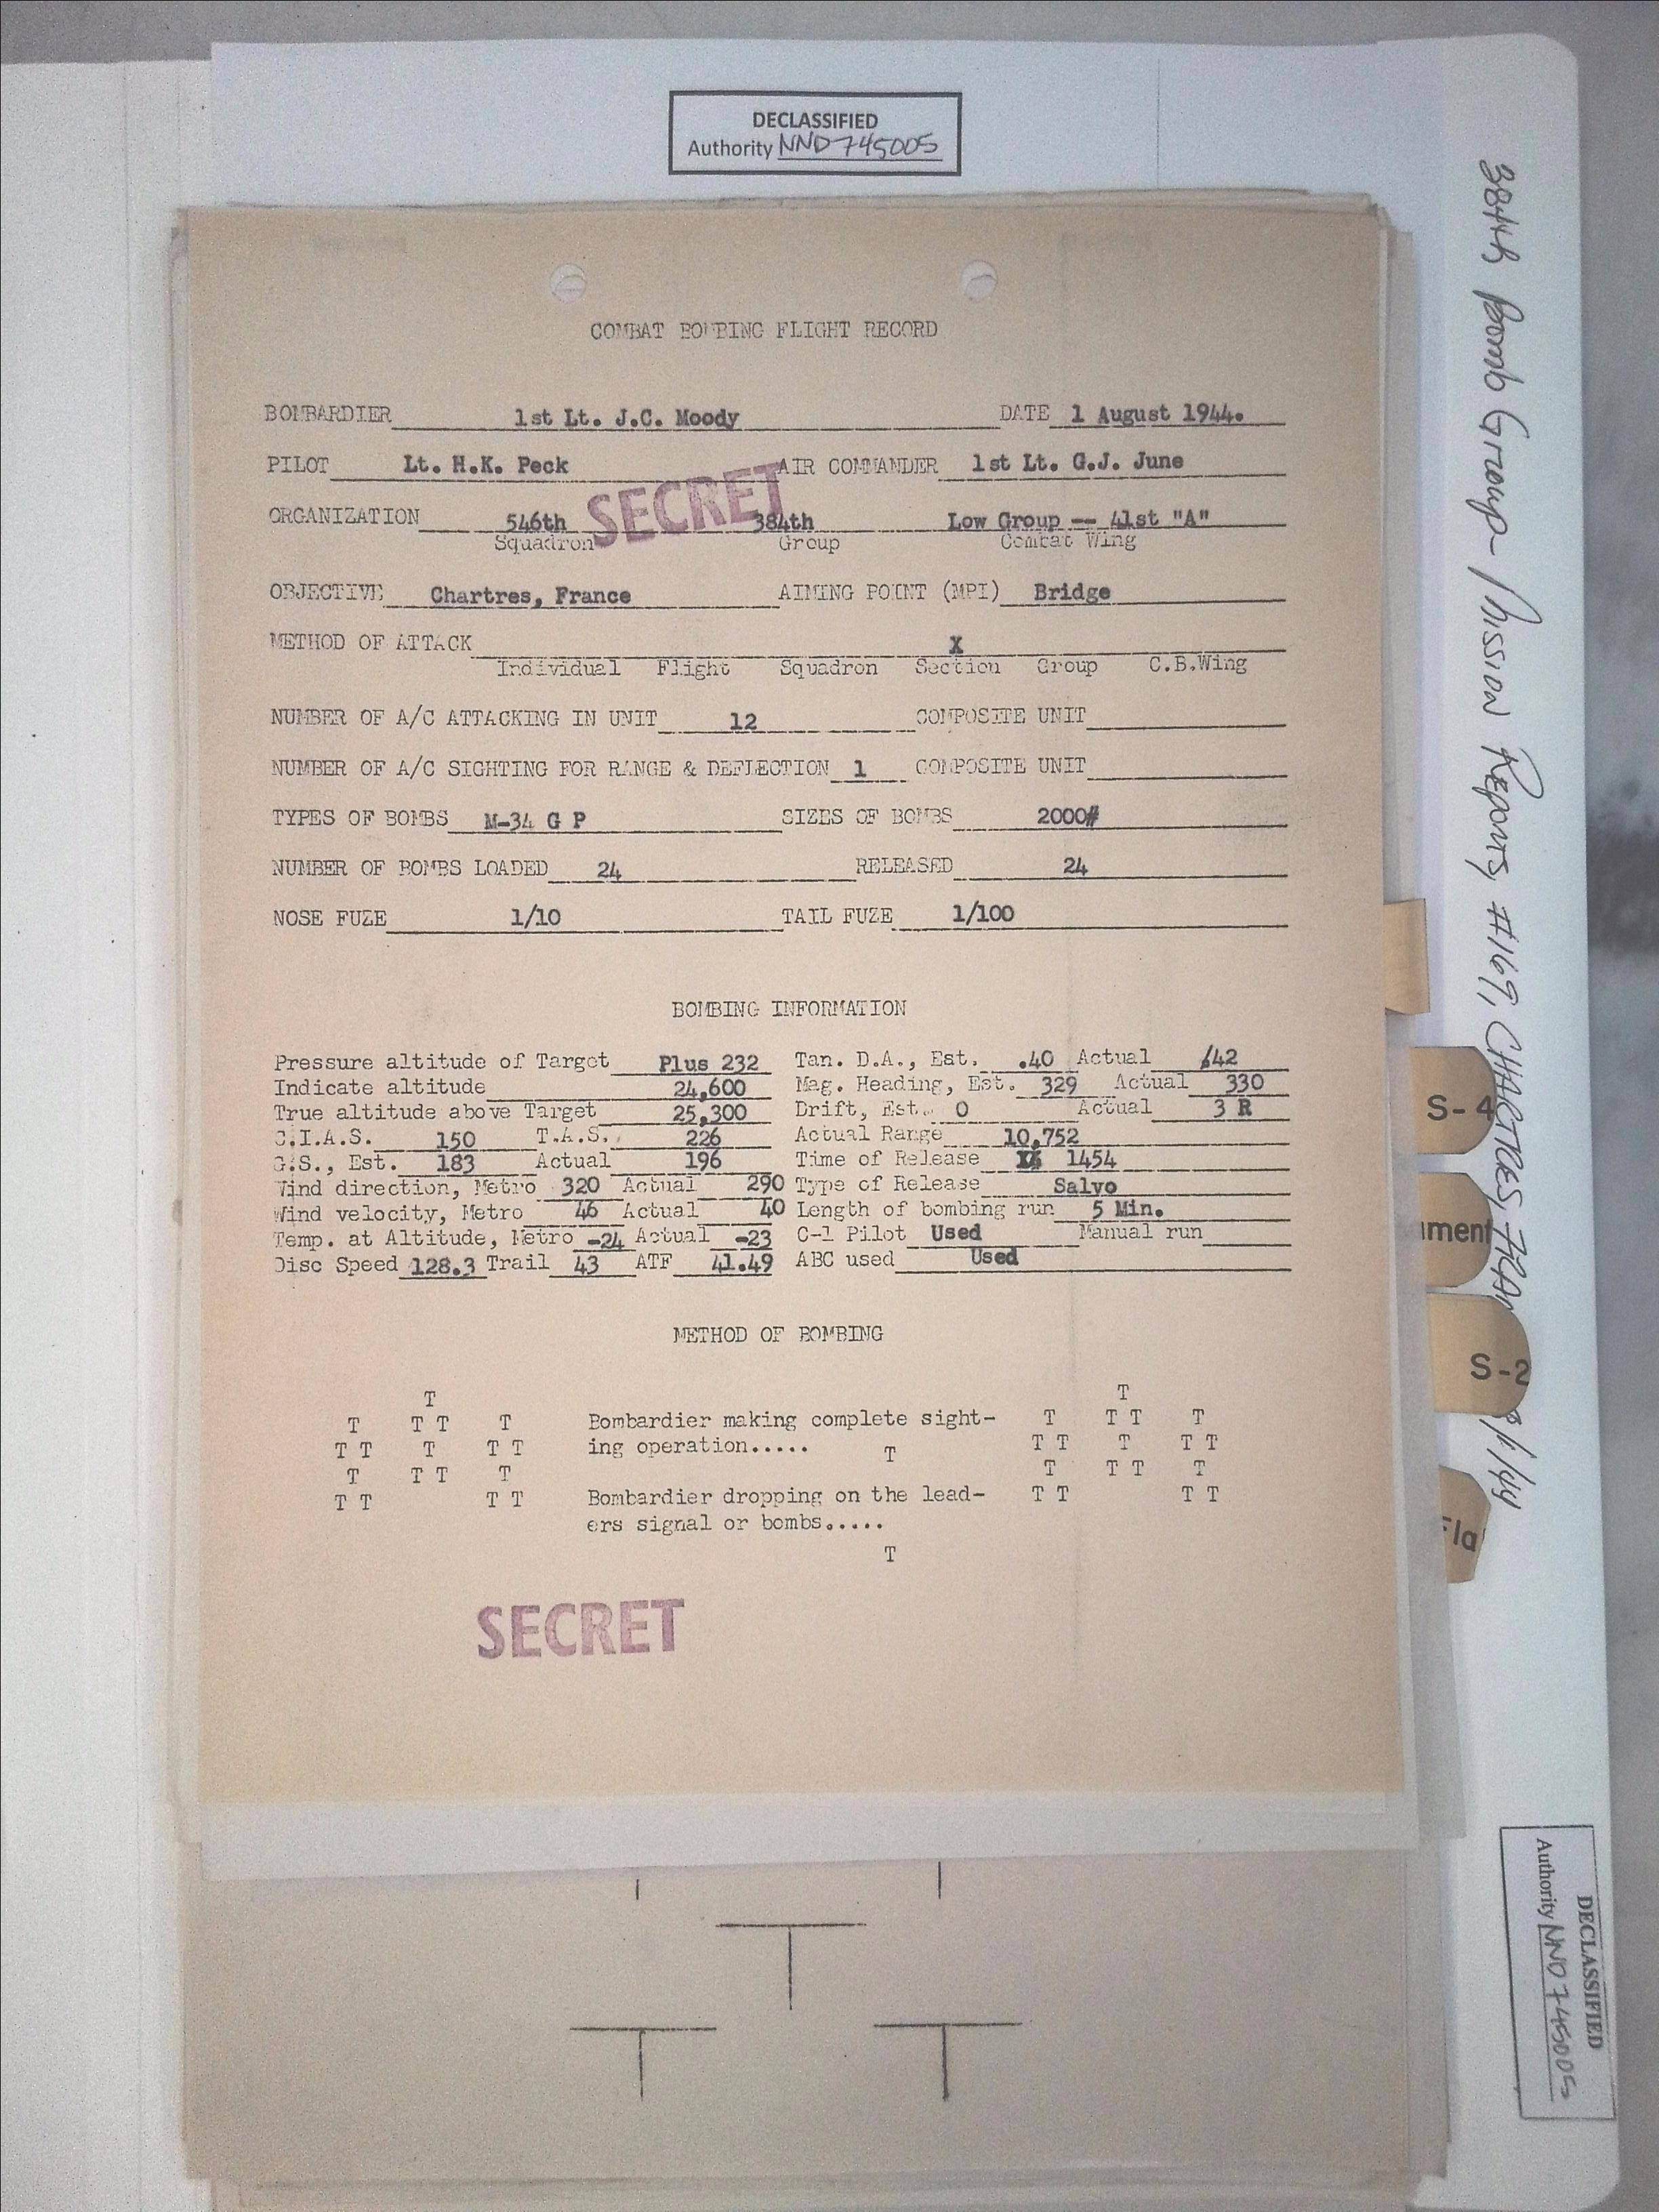 DECLASSIFIED
Authority NND 745005
COMBAT BOMBING FLIGHT RECORD
BOMBARDIER 1st Lt. J.C. Moody DATE 1 August 1944.
PILOT Lt. H.K. Peck AIR COMMANDER 1st Lt. G.J. June
SECRET
ORGANIZATION 546th 384th Low Group -- 41st "A"
Squadron Group Combat Wing
OBJECTIVE Chartres, France AIMING POINT (MPI) Bridge
METHOD OF ATTACK X
Individual Flight Squadron Section Group C.B.Wing
NUMBER OF A/C ATTACKING IN UNIT 12 COMPOSITE UNIT
NUMBER OF A/C SIGHTING FOR RANGE & DEFLECTION 1 COMPOSITE UNIT
TYPES OF BOMBS M-34 G P SIZES OF BOMBS 2000#
NUMBER OF BOMBS LOADED 24 RELEASED 24
NOSE FUZE 1/10 TAIL FUZE 1/100
BOMBING INFORMATION
Pressure altitude of Target Plus 232 Tan. D.A., Est. .40 Actual .42
Indicate altitude 24,600 Mag. Heading, Est. 329 Actual 330
True altitude above Target 25,300 Drift, Est. 0 Actual 3 R
C.I.A.S. 150 T.A.S. 226 Actual Range 10,752
G.S., Est. 183 Actual 196 Time of Release 1454
Wind direction, Metro 320 Actual 290 Type of Release Salvo
Wind velocity, Metro 46 Actual 40 Length of bombing run 5 Min.
Temp. at Altitude, Metro -24 Actual -23 C-1 Pilot Used Manual run
Disc Speed 128.3 Trail 43 ATF 41.49 ABC used Used
METHOD OF BOMBING
T T
T T T T Bombardier making complete sight- T T T T
T T T T T ing operation..... T T T T T T
T T T T T T T T
T T T T Bombardier dropping on the lead- T T T T
ers signal or bombs.....
T
SECRET
384th Bomb Group - Mission Reports, #169, CHARTRES, FRAN 8/1/44
S-4
ument
S-2
Fla
DECLASSIFIED
Authority NND 745005